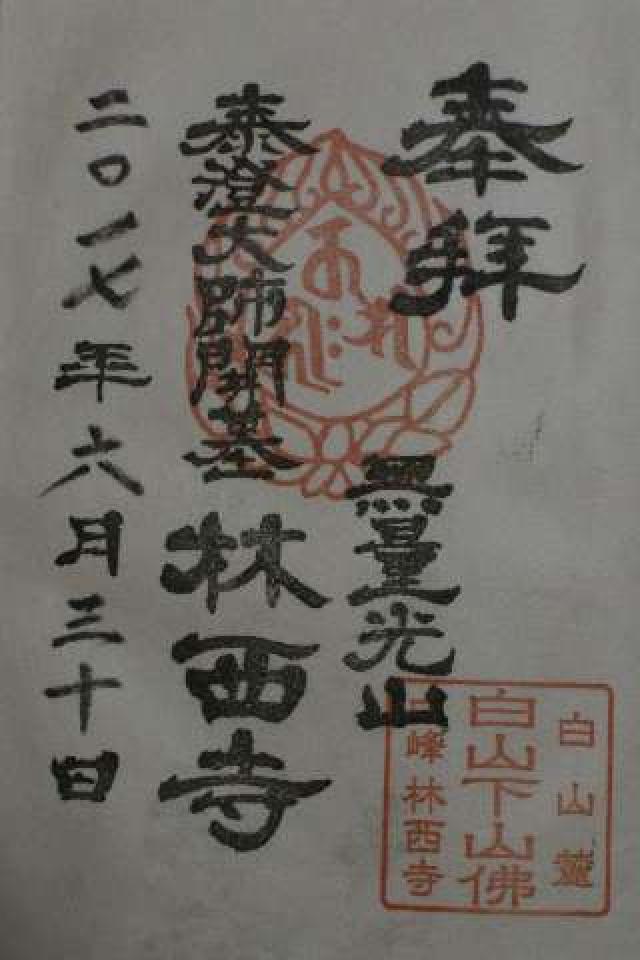 奉拜
無量光山
泰澄大師開基
林西寺
二〇一七年六月三十日
白山麓
白山下山佛
峰林西寺